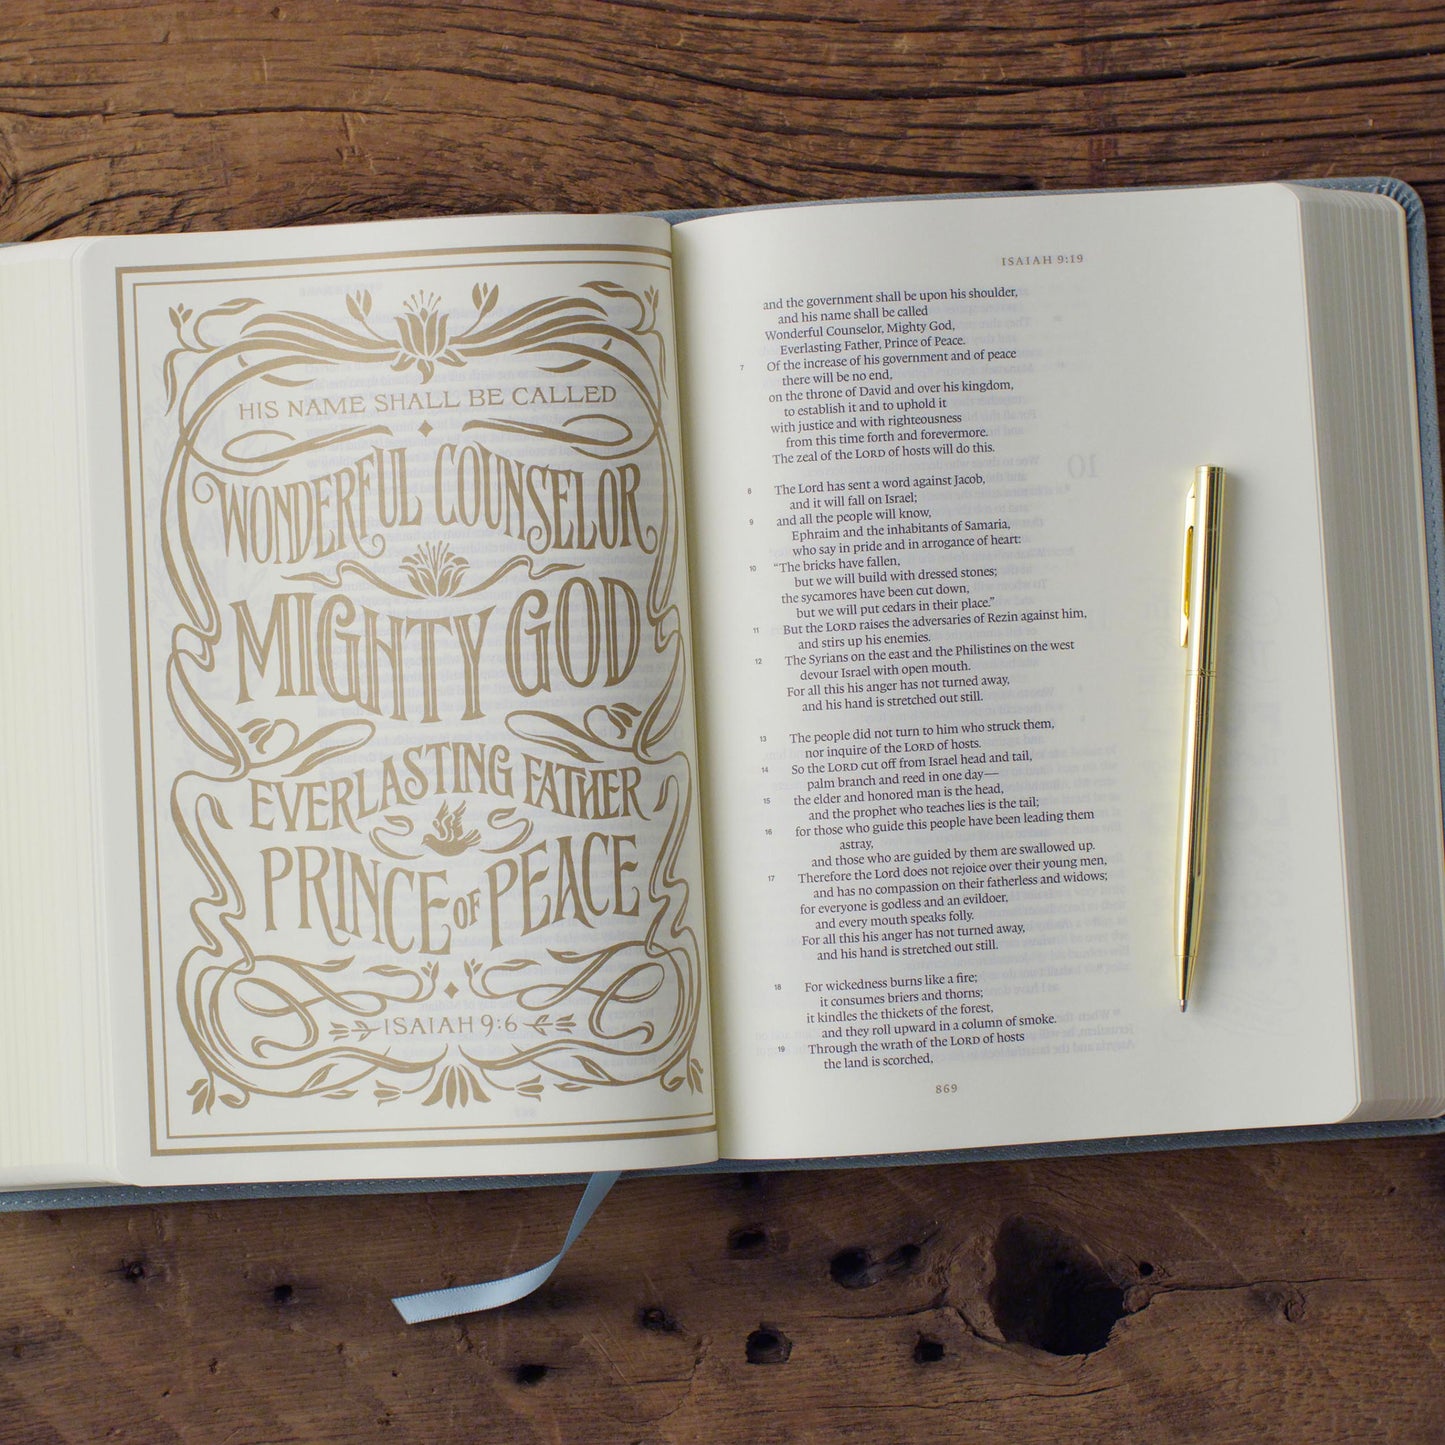 HIS NAME SHALL BE CALLED
WONDERFUL COUNSELOR
MIGHTY GOD
EVERLASTING FATHER
PRINCE OF PEACE
ISAIAH 9:6
ISAIAH 9:19
and the government shall be upon his shoulder,
and his name shall be called
Wonderful Counselor, Mighty God,
Everlasting Father, Prince of Peace.
7 Of the increase of his government and of peace
there will be no end,
on the throne of David and over his kingdom,
to establish it and to uphold it
with justice and with righteousness
from this time forth and forevermore.
The zeal of the LORD of hosts will do this.
8 The Lord has sent a word against Jacob,
and it will fall on Israel;
9 and all the people will know,
Ephraim and the inhabitants of Samaria,
who say in pride and in arrogance of heart:
10 “The bricks have fallen,
but we will build with dressed stones;
the sycamores have been cut down,
but we will put cedars in their place.”
11 But the LORD raises the adversaries of Rezin against him,
and stirs up his enemies.
12 The Syrians on the east and the Philistines on the west
devour Israel with open mouth.
For all this his anger has not turned away,
and his hand is stretched out still.
13 The people did not turn to him who struck them,
nor inquire of the LORD of hosts.
14 So the LORD cut off from Israel head and tail,
palm branch and reed in one day—
15 the elder and honored man is the head,
and the prophet who teaches lies is the tail;
16 for those who guide this people have been leading them
astray,
and those who are guided by them are swallowed up.
17 Therefore the Lord does not rejoice over their young men,
and has no compassion on their fatherless and widows;
for everyone is godless and an evildoer,
and every mouth speaks folly.
For all this his anger has not turned away,
and his hand is stretched out still.
18 For wickedness burns like a fire;
it consumes briers and thorns;
it kindles the thickets of the forest,
and they roll upward in a column of smoke.
19 Through the wrath of the LORD of hosts
the land is scorched,
869